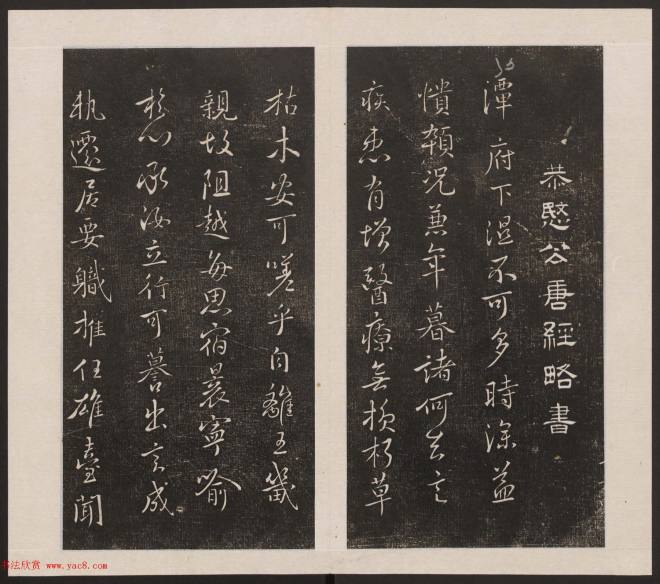 恭愍公唐經略書
潭府下溼不可多時深益
憒況兼年暮諸何言
疾患有增醫療無損朽草
枯木安可嗟乎自離王畿
親故阻越每思宿曩寧喻
於心承汝立行可謩出言成
軌遷居要職推任雄臺聞
书法欣赏 www.yac8.com